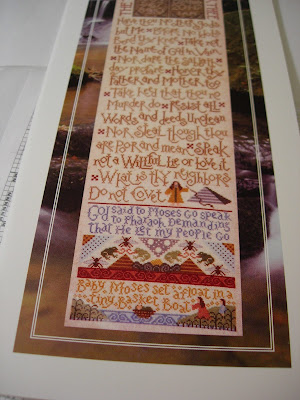 Have thou neither Gods
But Me • Before no Idols
Bend thy knee • Take not
the Name of God in Vain
• Nor dare the Sabbath
day profane • Honor thy
Father and Mother too
• Take heed that thou no
Murder do • Resist all
Words and deeds Unclean
• Nor Steal though thou
are poor and mean • Speak
not a Willful lie or love it
• What is thy neighbors
Do not Covet
God said to Moses Go speak
to Pharaoh Demanding
that He let my People Go
Baby Moses set afloat in a
tiny Basket Boat